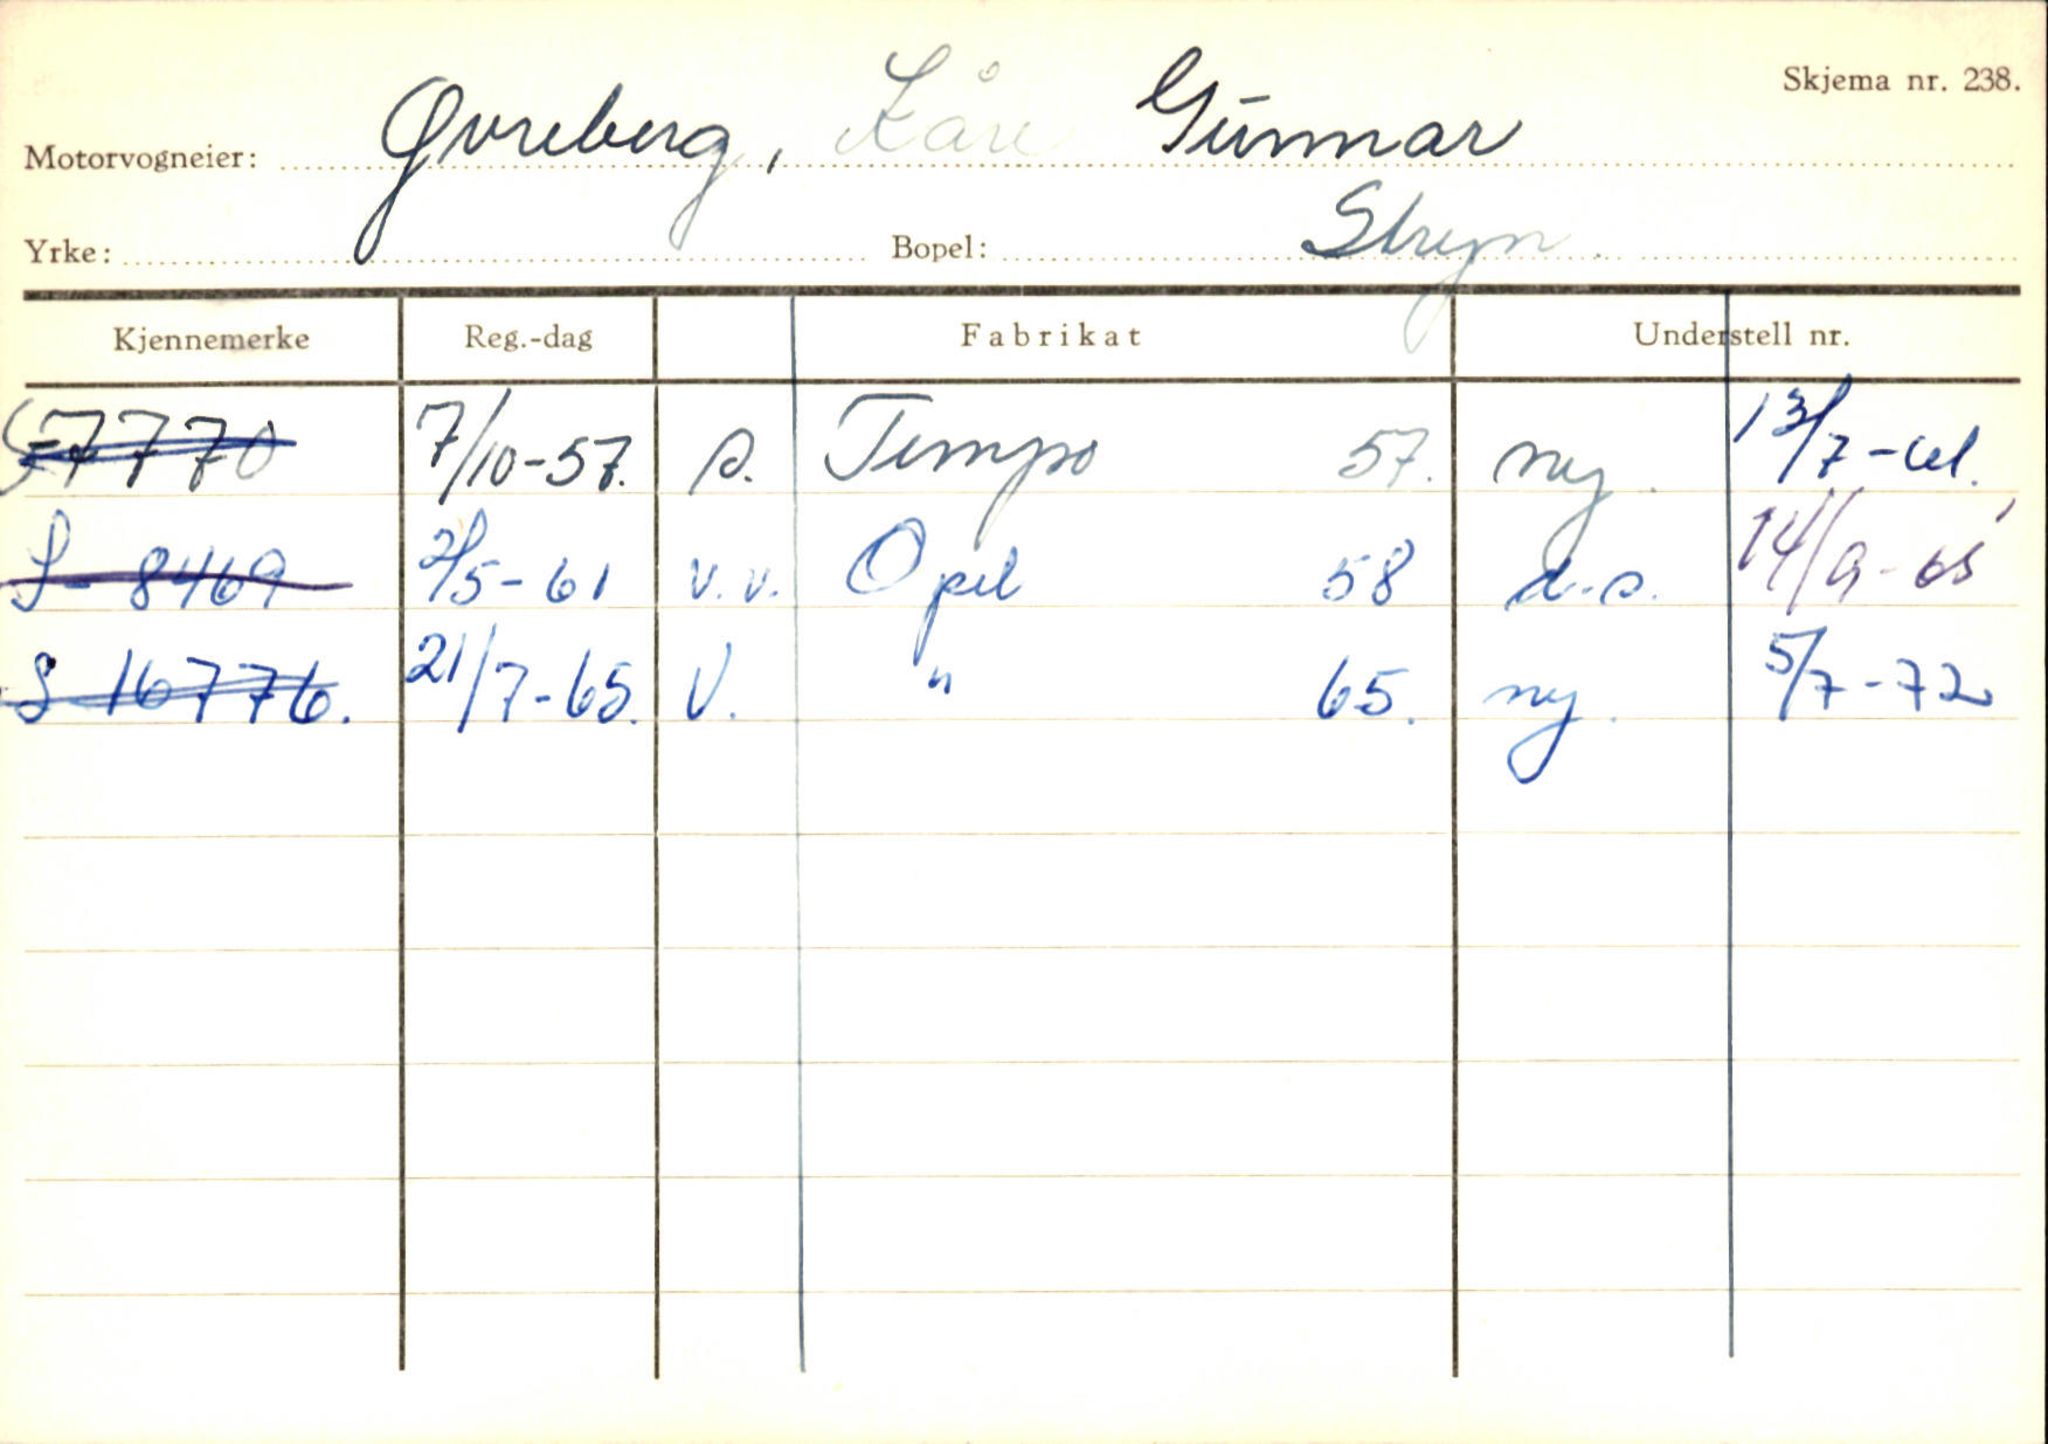 Skjema nr. 238.
Motorvogneier: Øvreberg, Kåre Gunnar
Yrke: Bopel: Stryn
Kjennemerke Reg.-dag Fabrikat Understell nr.
S-7770 7/10-57. s. Tempo 57. ny. 13/7-61.
S-8469 2/5-61 v.v. Opel 58 d.s. 14/9-65
S-16776. 21/7-65. V. " 65. ny. 5/7-72